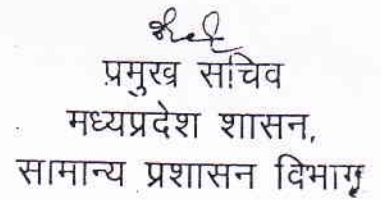 प्रमुख सचिव
मध्यप्रदेश शासन,
सामान्य प्रशासन विभाग